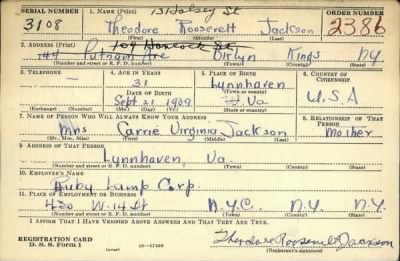 SERIAL NUMBER 1. NAME (Print) 131 Halsey St ORDER NUMBER
3108 Theodore Roosevelt Jackson 2386
(First) (Middle) (Last)
2. ADDRESS (Print) 109 Hancock St.
Putnam Ave Bklyn Kings N.Y.
(Number and street or R. F. D. number) (Town) (County) (State)
3. TELEPHONE 4. AGE IN YEARS 5. PLACE OF BIRTH 6. COUNTRY OF CITIZENSHIP
— 31 Lynnhaven
DATE OF BIRTH (Town or county)
Sept 21 1909 Va U.S.A
(Exchange) (Number) (Mo.) (Day) (Yr.) (State or country)
7. NAME OF PERSON WHO WILL ALWAYS KNOW YOUR ADDRESS 8. RELATIONSHIP OF THAT PERSON
Mrs Carrie Virginia Jackson Mother
(Mr., Mrs., Miss) (First) (Middle) (Last)
9. ADDRESS OF THAT PERSON
Lynnhaven, Va.
(Number and street or R. F. D. number) (Town) (County) (State)
10. EMPLOYER'S NAME
Ruby Lamp Corp.
11. PLACE OF EMPLOYMENT OR BUSINESS
420 W. 14 St N.Y.C. N.Y. N.Y.
(Number and street or R. F. D. number) (Town) (County) (State)
I AFFIRM THAT I HAVE VERIFIED ABOVE ANSWERS AND THAT THEY ARE TRUE.
REGISTRATION CARD Theodore Roosevelt Jackson
D. S. S. Form 1 (Registrant's signature)